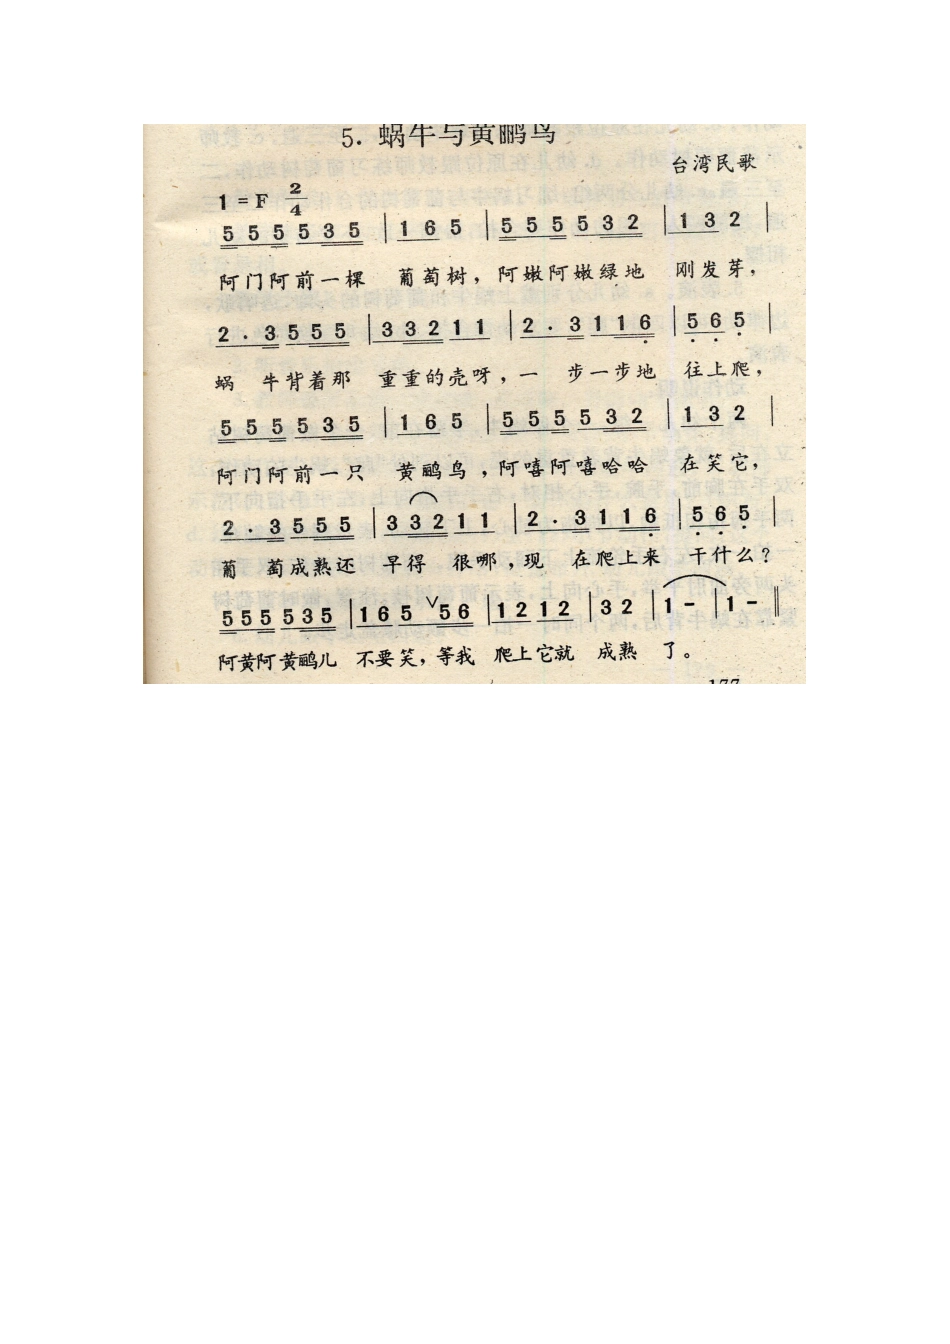 5. 蜗牛与黄鹂鸟
台湾民歌
1 = F 2/4
5 5 5 5 5 3 5 | 1 6 5 | 5 5 5 5 5 3 2 | 1 3 2 |
阿门阿前一棵 葡萄树，阿嫩阿嫩绿地 刚发芽，
2 . 3 5 5 5 | 3 3 2 1 1 | 2 . 3 1 1 6 | 5 6 5 |
蜗 牛背着那 重重的壳呀，一 步一步地 往上爬，
5 5 5 5 5 3 5 | 1 6 5 | 5 5 5 5 5 3 2 | 1 3 2 |
阿门阿前一只 黄鹂鸟，阿嘻阿嘻哈哈 在笑它，
2 . 3 5 5 5 | 3 3 2 1 1 | 2 . 3 1 1 6 | 5 6 5 |
葡 萄成熟还 早得 很哪，现 在爬上来 干什么？
5 5 5 5 3 5 | 1 6 5 ∨ 5 6 | 1 2 1 2 | 3 2 | 1 - | 1 - ‖
阿黄阿黄鹂儿 不要笑，等我 爬上它就 成熟 了。